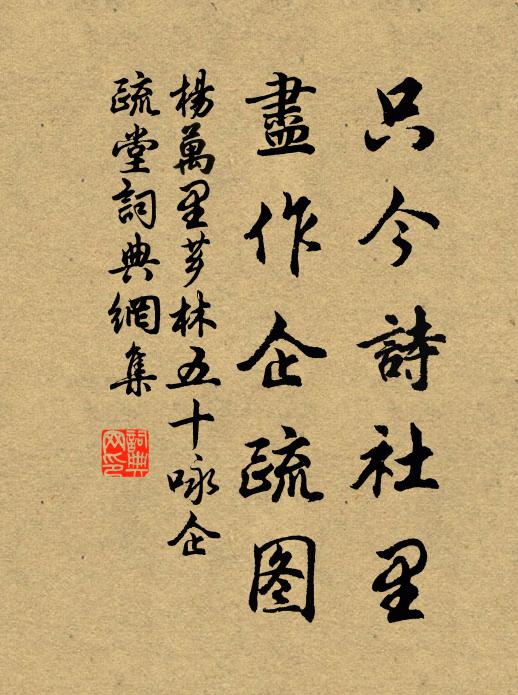 只今詩社里
盡作企疏图
楊萬里芗林五十咏企
疏堂詞典網集
詞典网印